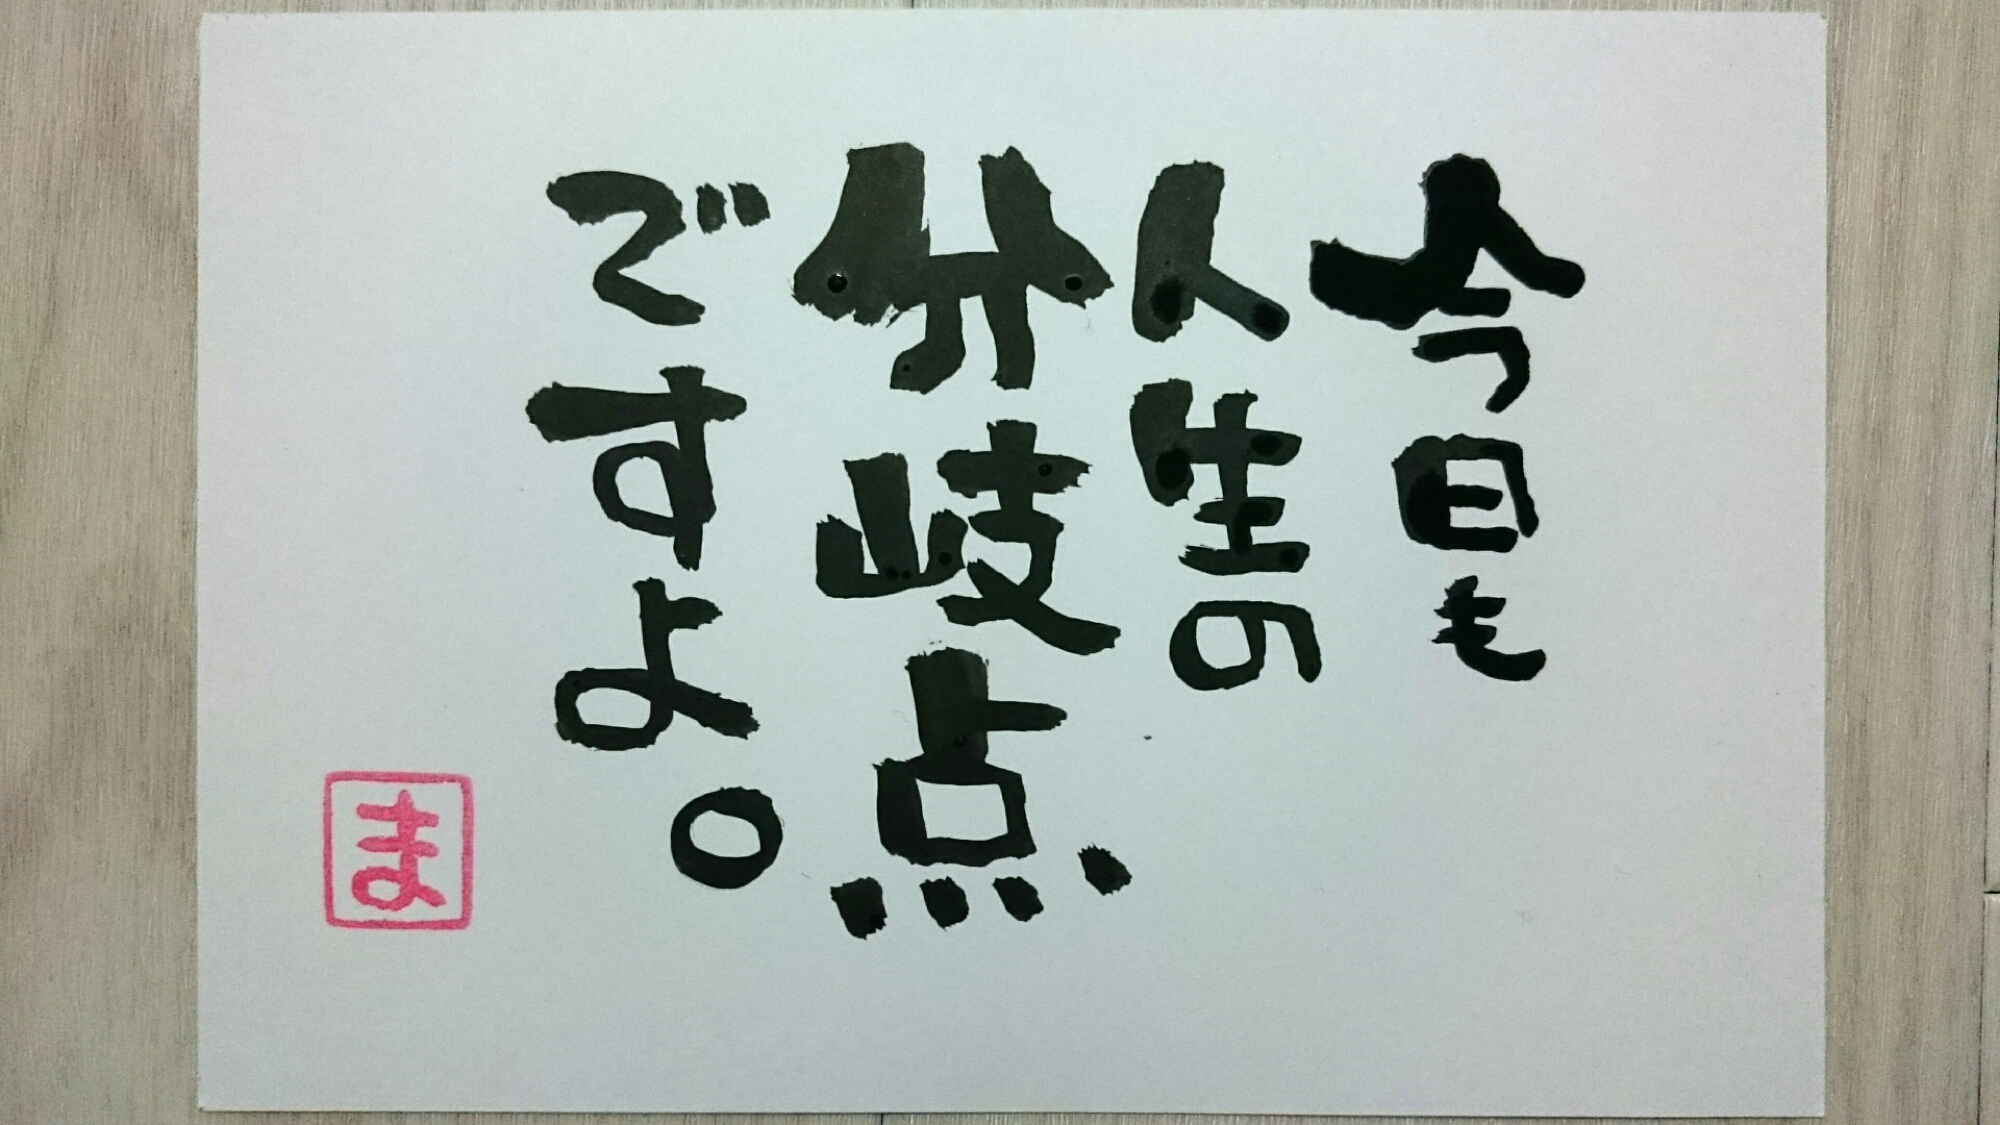 今日も
人生の
分岐点
ですよ。
ま